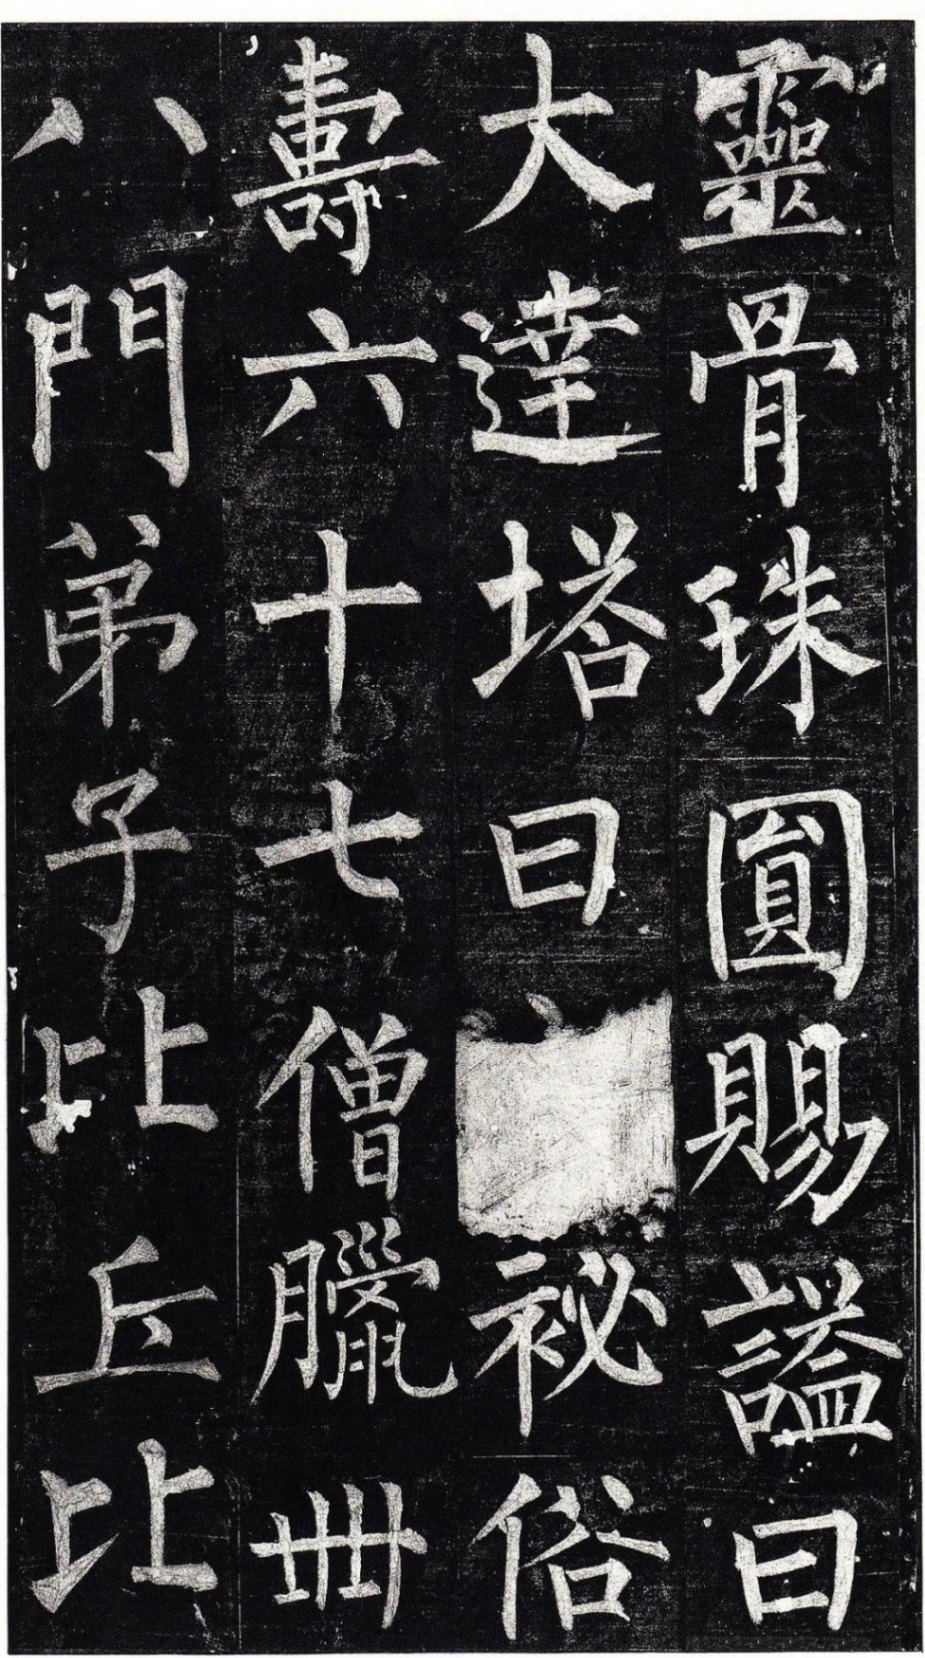 靈骨珠圓賜謚曰
大達塔曰秘俗
壽六十七僧臘卌
八門弟子比丘比